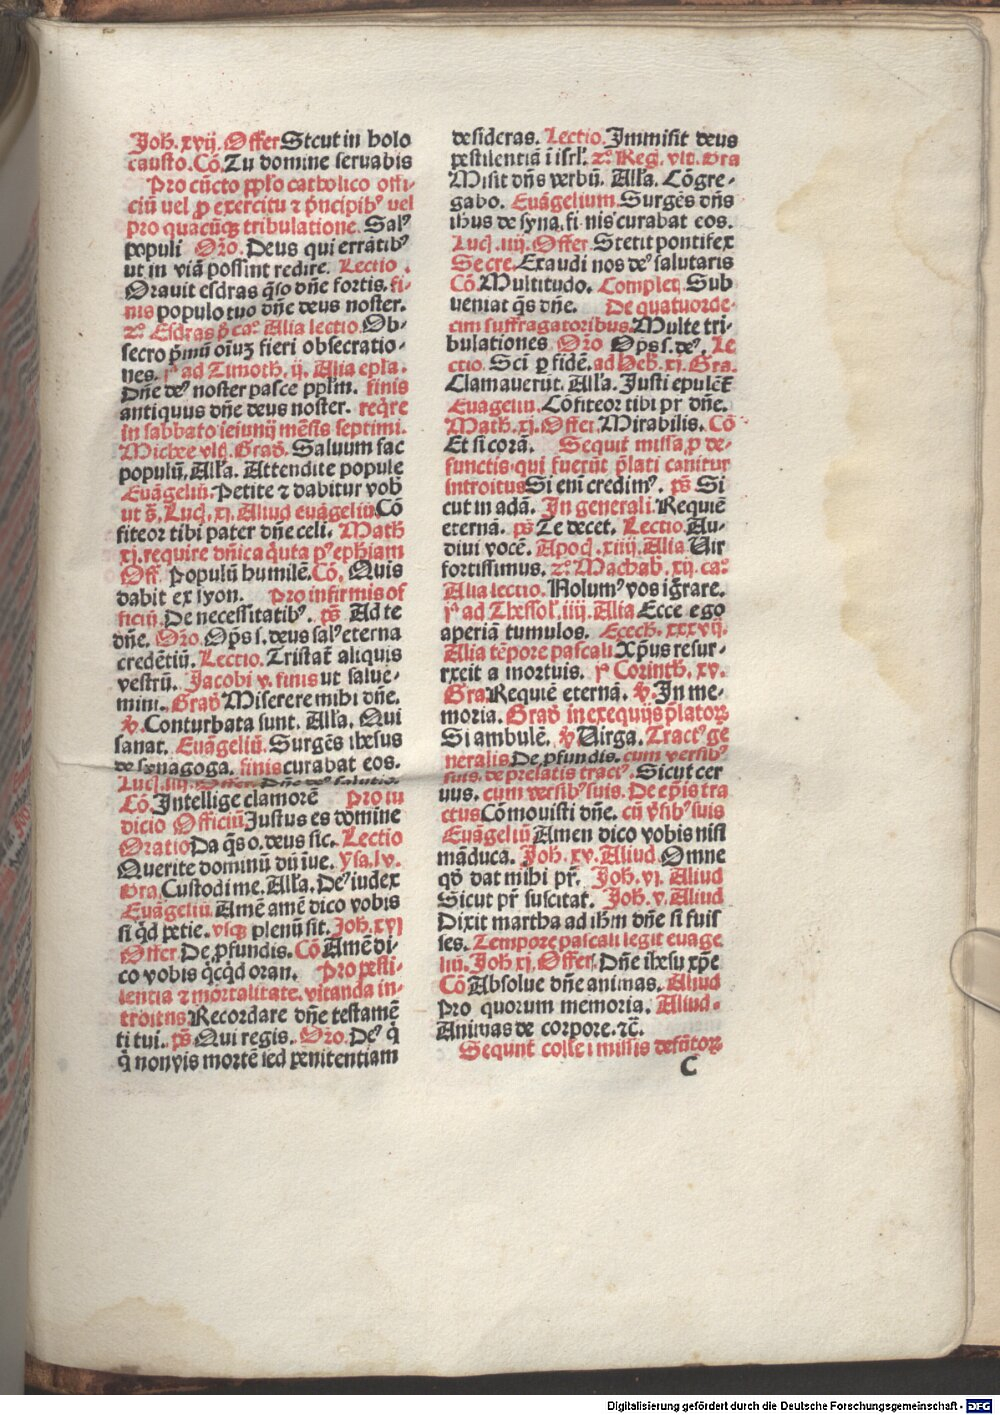 Joh̄. xvij. Offer Sicut in holo
causto. Cō. Tu domine seruabis
Pro cūcto pp̄lo catholico offi-
ciū vel p̱ exercitu ⁊ p̄ncipibꝰ vel
pro quacūqꝫ tribulatione. Salꝰ
populi Oro͞. Deus qui errātibꝰ
ut in viā possint redire. Lectio.
Orauit esdras q̄so dn̄e fortis. fi-
nis populo tuo dn̄e deus noster.
2.º Esdras p̄ caº Alia lectio. Ob-
secro p̄mū oīuꝫ fieri obsecratio-
nes. jª ad Timoth. ij. Alia ep̄la.
Dn̄e deꝰ noster pasce pp̄lm̄. finis
antiquus dn̄e deus noster. req̄re
in sabbato ieiunij mēsis septimi.
Michee vlt̄. Grad̄. Saluum fac
populū. Alla̅. Attendite popule
Euāgeliū. Petite ⁊ dabitur vob̄
ut s̄. Luc̄. xj. Aliud euāgeliū. Cō
fiteor tibi pater dn̄e celi. Math̄
xj. require dn̄ica q̄uta pꝰ eph̄iam
Off̄. Populū humilē. Cō. Quis
dabit ex syon. Pro infirmis of
ficiū. De necessitatibꝰ. p̄s Ad te
dn̄e. Oro͞. Op̄s s. deus salꝰ eterna
credētiū. Lectio. Tristat̄ aliquis
vestrū. Jacobi v. finis ut salue-
mini. Grad̄ Miserere mihi dn̄e.
℣. Conturbata sunt. Alla̅. Qui
sanat. Euāgeliū. Surgēs ihesus
de synagoga. finis curabat eos.
Luc̄. iiij. Offer. Dn̄e deꝰ salutis.
Cō. Intellige clamorē Pro iu
dicio Officiū Justus es domine
Oratio Da q̄s o. deus sic. Lectio
Querite dominū dū īue. Ysa. lv.
Gra. Custodi me. Alla̅. Deꝰ iudex
Euāgeliū. Amē amē dico vobis
si q̄d petie. vsqꝫ plenū sit. Joh. xvj
Offer De p̱fundis. Cō Amē di-
co vobis q̄cq̄d oran. Pro pesti-
lentia ⁊ mortalitate. vitanda in-
troitus Recordare dn̄e testamē
ti tui. p̄s. Qui regis. Oro͞. Deꝰ q̄
q̄ non vis mortē sed penitentiam
desideras. Lectio. Jmmisit deus
pestilentiā ī isrl̄. 2.º Reḡ. vlt̄. Gra
Misit dn̄s verbū. Alla̅. Cōgre-
gabo. Euāgelium. Surgēs dn̄s
ihus de syna. finis curabat eos.
Luc̄. iiij. Offer. Stetit pontifex
Secre. Exaudi nos deꝰ salutaris
Cō. Multitudo. Complen̄. Sub
ueniat q̄s dn̄e. De quatuorde-
cim suffragatoribus. Multe tri-
bulationes Oro͞ Op̄s s. deꝰ. Le
ctio. Sci̅ p̱ fidē. ad Heb̄. xj. Gra.
Clamauerūt. Alla̅. Justi epulēt̄
Euāgeliū. Cōfiteor tibi pr̄ dn̄e.
Math̄. xj. Offer. Mirabilis. Cō
Et si corā. Sequit̄ missa p̱ de-
functis. qui fuerūt p̄lati canitur
introitus Si eni̅ credimꝰ. p̄s Si
cut in adā. Jn generali. Requiē
eternā. p̄s Te decet. Lectio. Au-
diui vocē. Apoc̄. xiiij. Alia. Vir
fortissimus. 2.º Machab̄. xij. caº
Alia lectio. Nolumꝰ vos ig̅rare.
jª ad Thessol. iiij. Alia Ecce ego
aperiā tumulos. Ezech̄. xxxvij.
Alia tēpore pascali Xp̄us resur-
rexit a mortuis. jª Corinth̄. xv.
Gra. Requiē eternā. ℣. Jn me-
moria. Grad̄ in exequijs p̄latorꝝ
Si ambulē. ℣ Virga. Tractꝰ ge
neralis. De p̱fundis. cum versibꝰ
suis. de prelatis tractꝰ. Sicut cer
uus. cum versibꝰ suis. De ep̄is tra
ctus Cōmouisti dn̄e. cū v̄sibꝰ suis
Euāgeliū Amen dico vobis nisi
māduca. Joh̄. xv. Aliud. Omne
qd̄ dat mihi pr̄. Joh̄. vj. Aliud
Sicut pr̄ suscitat. Joh̄. v. Aliud
Dixit martha ad ihm̄ dn̄e si fuis
ses. Tempore pascali legit̄ euāge
liū. Joh xj. Offer. Dn̄e ihesu xp̄e
Cō Absolue dn̄e animas. Aliud
Pro quorum memoria. Aliud.
Animas de corpore. ⁊c̄.
Sequūt̄ colle i missis defūctorꝝ
C
Digitalisierung gefördert durch die Deutsche Forschungsgemeinschaft - DFG